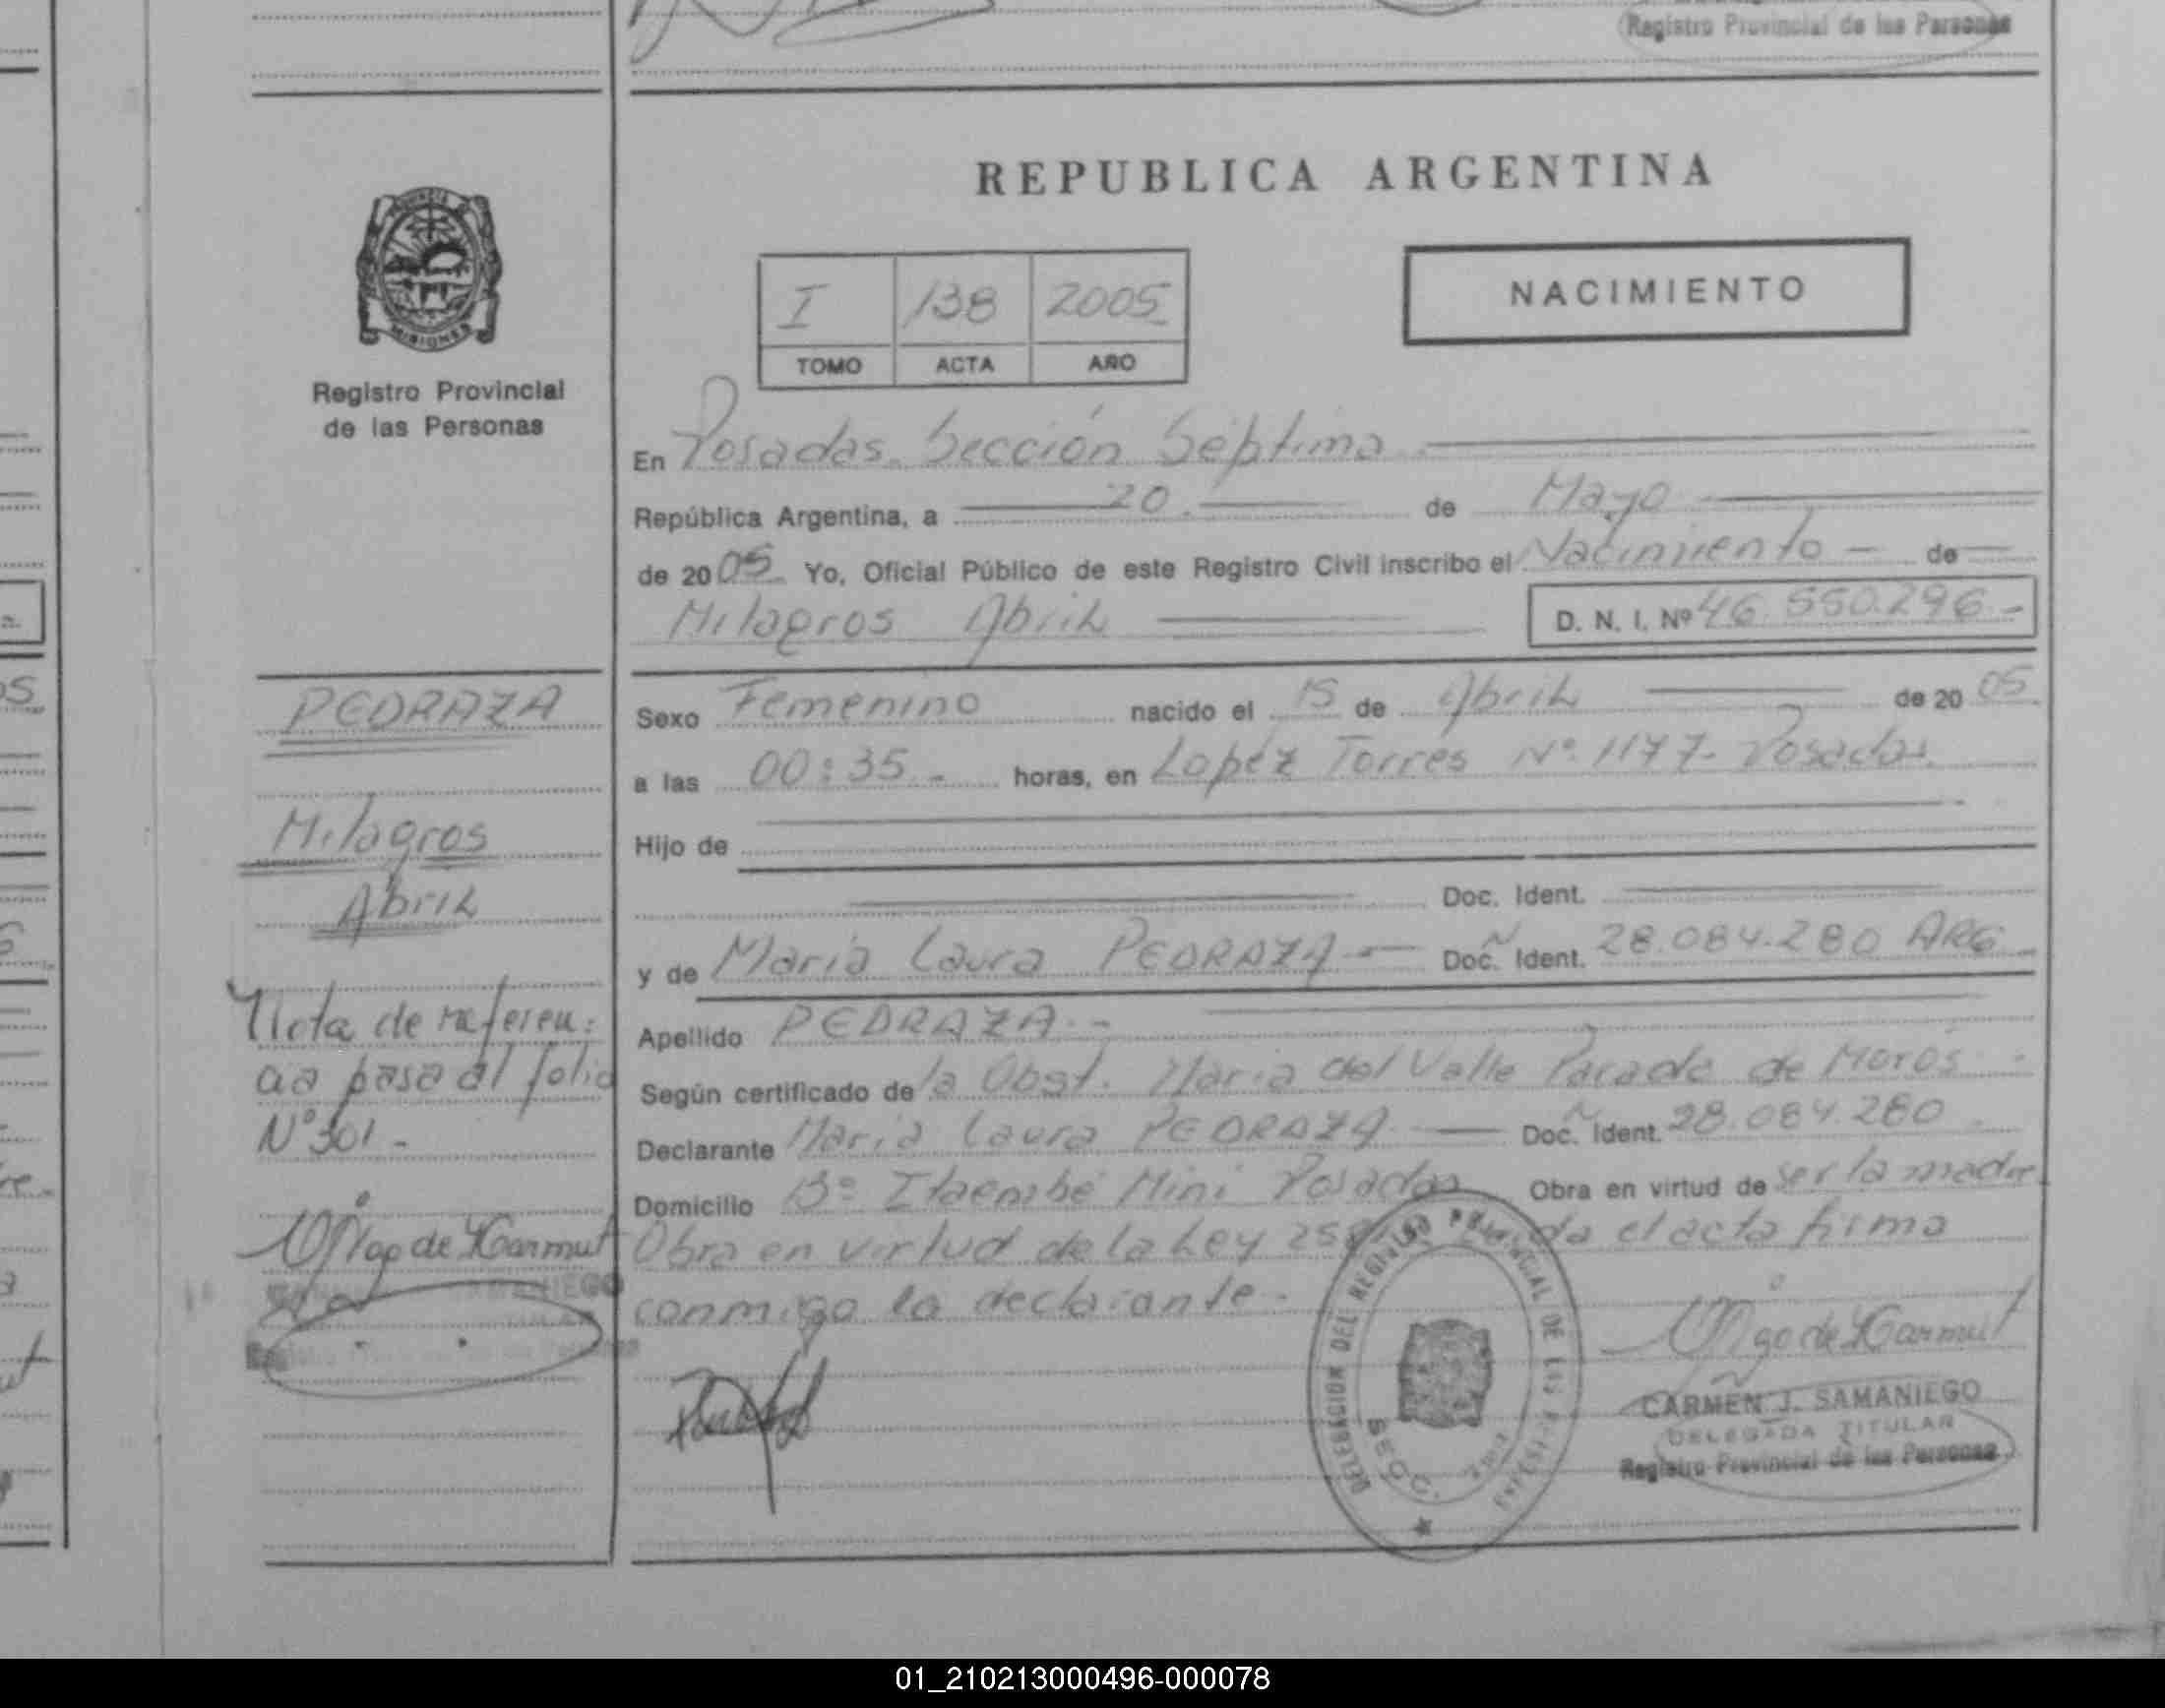 Registro Provincial de las Personas
REPUBLICA ARGENTINA
MISIONES
Registro Provincial
de las Personas
I 138 2005
TOMO ACTA AÑO
NACIMIENTO
En Posadas Sección Séptima
República Argentina, a 20 de Mayo
de 2005 Yo, Oficial Público de este Registro Civil inscribo el Nacimiento de
Milagros Abril D. N. I. Nº 46.550.296
PEDRAZA
Milagros
Abril
Sexo Femenino nacido el 15 de Abril de 2005
a las 00:35 - horas, en Lopéz Torres Nº 1177- Posadas.
Hijo de
Doc. Ident.
y de Maria Laura PEDRAZA Doc. Ident. 28.084.280 ARG
Apellido PEDRAZA.-
Según certificado de la Obst. Maria del Valle Parada de Moros
Declarante Maria Laura PEDRAZA Doc. Ident. 28.084.280
Domicilio Bº Itaembé Mini Posadas Obra en virtud de ser la madre
Obra en virtud de la Ley el acta firma
conmigo la declarante.
Nota de referen:
cia pasa al folio
Nº 301.-
SAMANIEGO
DELEGACION DEL REGISTRO PROVINCIAL DE LAS PERSONAS
SECC.
CARMEN J. SAMANIEGO
DELEGADA TITULAR
Registro Provincial de las Personas
01_210213000496-000078